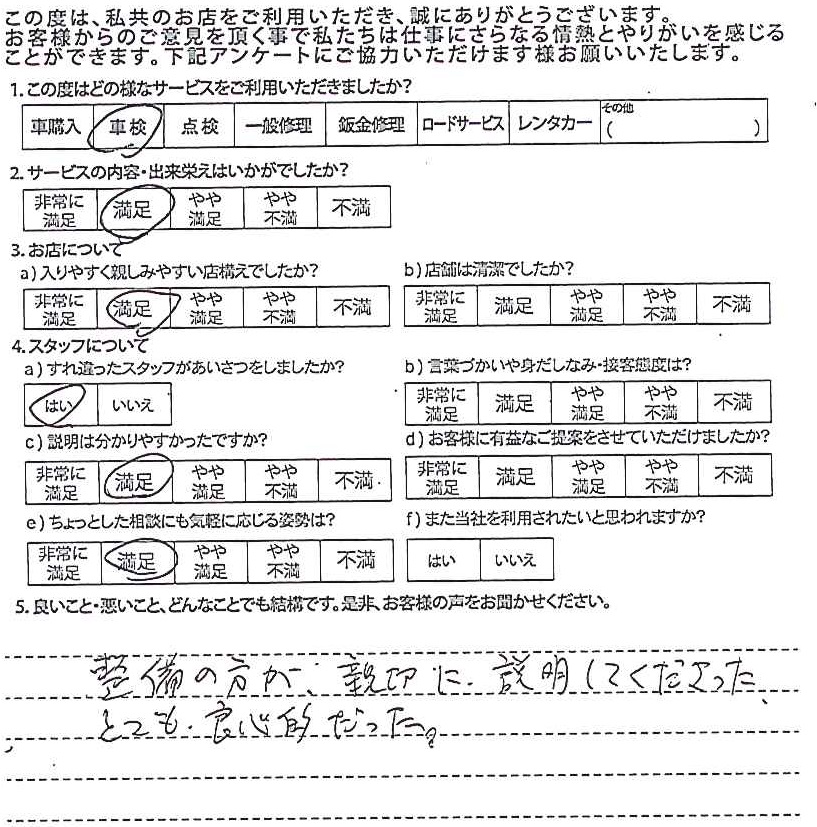 この度は、私共のお店をご利用いただき、誠にありがとうございます。
お客様からのご意見を頂く事で私たちは仕事にさらなる情熱とやりがいを感じる
ことができます。下記アンケートにご協力いただけます様お願いいたします。
1.この度はどの様なサービスをご利用いただきましたか?
車購入 車検 点検 一般修理 鈑金修理 ロードサービス レンタカー その他( )
2.サービスの内容・出来栄えはいかがでしたか?
非常に満足 満足 やや満足 やや不満 不満
3.お店について
a)入りやすく親しみやすい店構えでしたか?
非常に満足 満足 やや満足 やや不満 不満
b)店舗は清潔でしたか?
非常に満足 満足 やや満足 やや不満 不満
4.スタッフについて
a)すれ違ったスタッフがあいさつをしましたか?
はい いいえ
b)言葉づかいや身だしなみ・接客態度は?
非常に満足 満足 やや満足 やや不満 不満
c)説明は分かりやすかったですか?
非常に満足 満足 やや満足 やや不満 不満
d)お客様に有益なご提案をさせていただけましたか?
非常に満足 満足 やや満足 やや不満 不満
e)ちょっとした相談にも気軽に応じる姿勢は?
非常に満足 満足 やや満足 やや不満 不満
f)また当社を利用されたいと思われますか?
はい いいえ
5.良いこと・悪いこと、どんなことでも結構です。是非、お客様の声をお聞かせください。
整備の方が、親切に、説明してくださった、
とても、良心的だった。